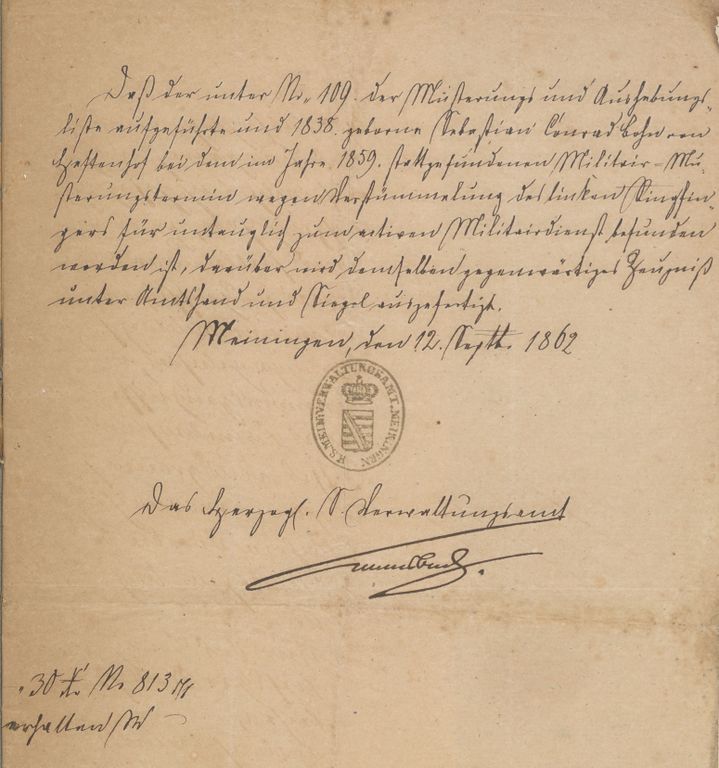 Daß der unter No. 109. der Musterungs und Aushebungs-
liste aufgeführte und 1838. geborne Sebastian Conrad Hohn von
Hestenhof bei dem im Jahre 1859. stattgefundenen Militair-Mu-
sterungstermin wegen Verstümmelung des linken Ringfin-
gers für untauglich zum activen Militairdienst befunden
worden ist, darüber wird demselben gegenwärtiges Zeugniß
unter Amtshand und Siegel ausgefertigt.
Meiningen, den 12. Septb. 1862
H.S.MEIN.VERWALTUNGSAMT.MEININGEN
Das Herzogl. S. Verwaltungsamt
30 No 813
erhalten